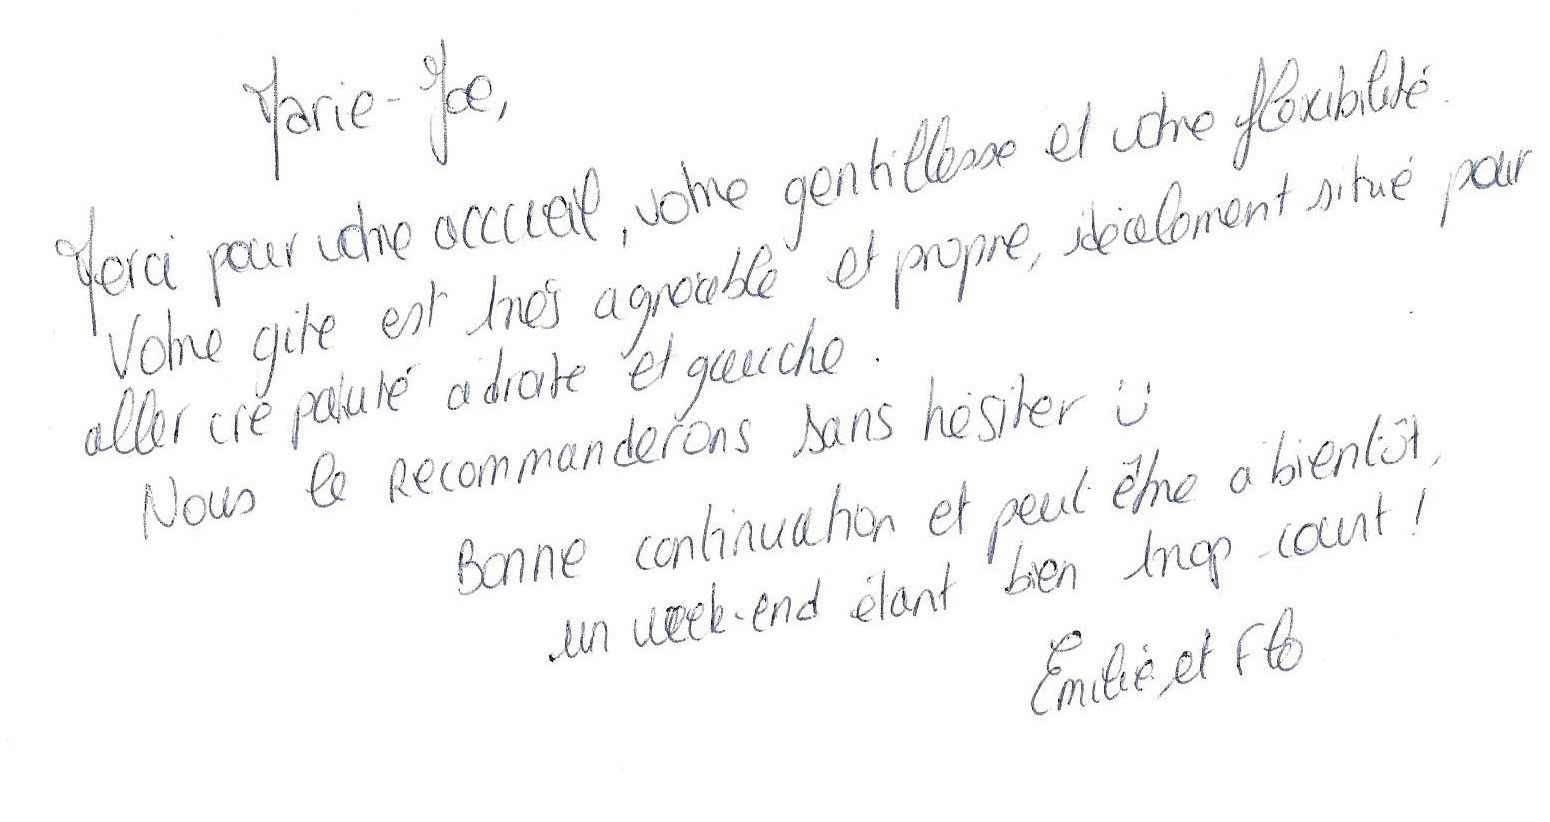 Marie-Joe,
Merci pour votre accueil, votre gentillesse et votre flexibilité.
Votre gite est très agréable et propre, idéalement situé pour
aller crépahuté a droite et gauche.
Nous le recommanderons sans hésiter ü
Bonne continuation et peut être a bientôt,
un week-end étant bien trop court !
Emilie et Flo